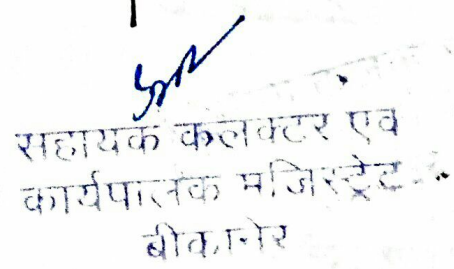 सहायक कलक्टर एव
कार्यपालक मजिस्ट्रेट
बीकानेर